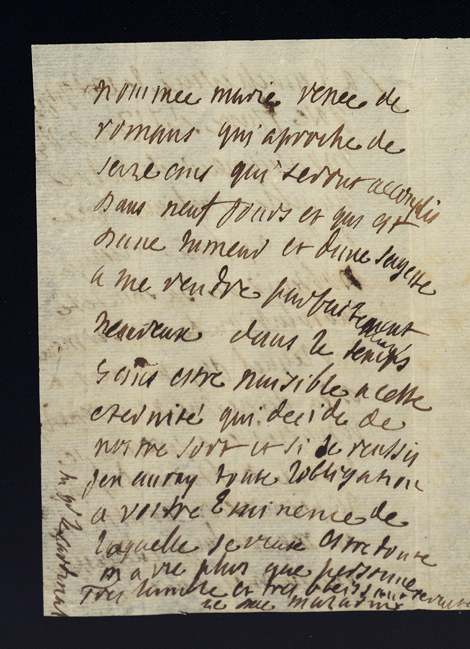 nommee marie renee de
romans qui aproche de
seize ans qui seront acomplis
dans neuf jours et qui est
dune humeur et dune sagesse
a me rendre parfaitement
heureux dans le temps
sans estre nuisible a cette
eternité qui decide de
nostre sort et si je reussis
jen auray toute lobligation
a vostre Eminence de
laquelle je veux estre toute
ma vie plus que personne
Tres humble et tres obeissant serviteur
le duc mazarini